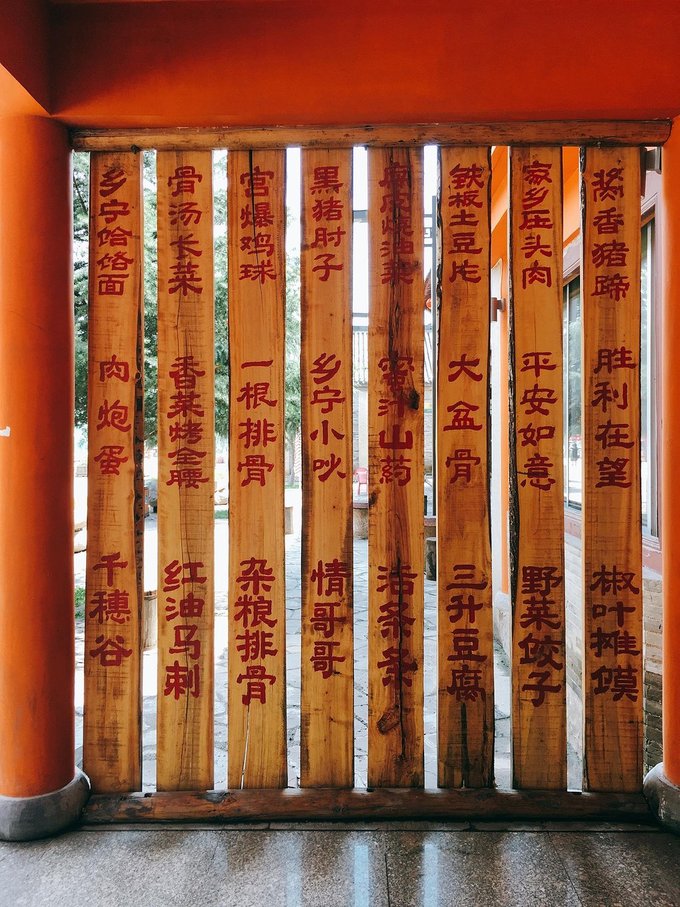 乡宁饸饹面
肉炮蛋
千穗谷
骨汤长菜
香菜烤金腰
红油马刺
宫爆鸡球
一根排骨
杂粮排骨
黑猪肘子
乡宁小吙
情哥哥
腐皮烧油菜
蜜汁山药
活条条
铁板土豆片
大盆骨
三升豆腐
家乡庄头肉
平安如意
野菜饺子
奖香猪蹄
胜利在望
椒叶摊馍